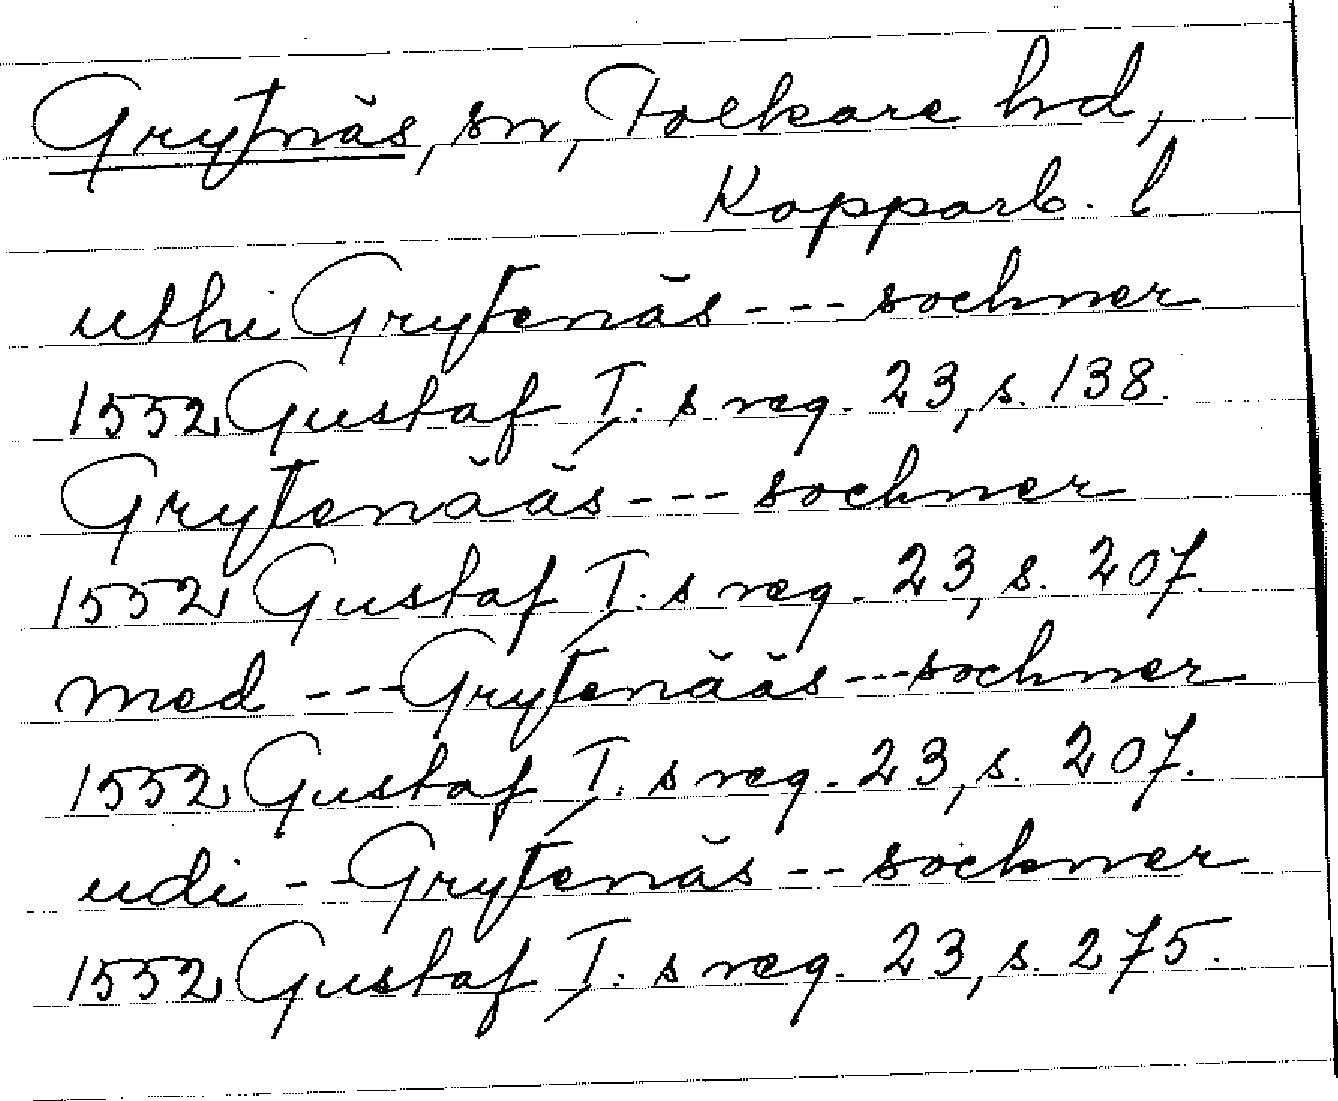 Grytnäs, sn, Folkare hd,
Kopparb. l
uthi Grytenäs --- sochner
1552 Gustaf I:s reg. 23, s. 138.
Grytenääs --- sochner
1552 Gustaf I:s reg. 23, s. 207.
med --- Grytenääs --- sochner
1552 Gustaf I:s reg. 23, s. 207.
udi -- Grytenäs -- sochner
1552 Gustaf I:s reg. 23, s. 275.